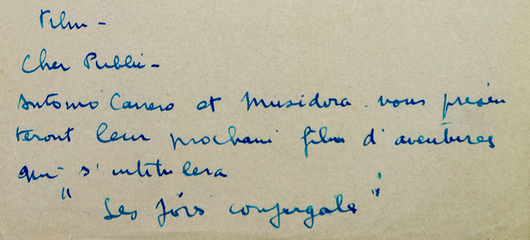 Film -
Cher Public -
Antonio Canero et Musidora vous présen
teront leur prochain film d'aventures
qui s'intitulera
" Les Joies conjugales "